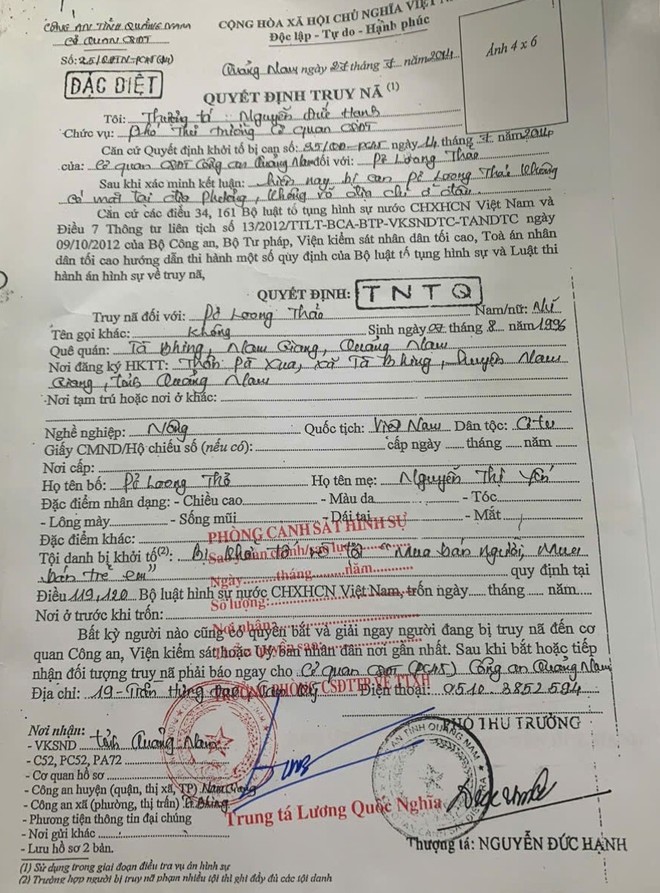 CÔNG AN TỈNH QUẢNG NAM
CƠ QUAN CSĐT
CỘNG HÒA XÃ HỘI CHỦ NGHĨA VIỆT
Độc lập - Tự do - Hạnh phúc
Số:
ĐẶC BIỆT
Quảng Nam, ngày 27 tháng năm 2014
Ảnh 4 x 6
QUYẾT ĐỊNH TRUY NÃ (1)
Tôi: Thượng tá: Nguyễn Đức Hạnh
Chức vụ: Phó Thủ trưởng Cơ quan CSĐT
Căn cứ Quyết định khởi tố bị can số: ngày 14 tháng năm 2014
của: Cơ quan CSĐT Công an Quảng Nam đối với: Pơ Loong Thảo
Sau khi xác minh kết luận: hiện nay bị can Pơ Loong Thảo không
có mặt tại địa phương, không rõ địa chỉ ở đâu.
Căn cứ các điều 34, 161 Bộ luật tố tụng hình sự nước CHXHCN Việt Nam và
Điều 7 Thông tư liên tịch số 13/2012/TTLT-BCA-BTP-VKSNDTC-TANDTC ngày
09/10/2012 của Bộ Công an, Bộ Tư pháp, Viện kiểm sát nhân dân tối cao, Toà án nhân
dân tối cao hướng dẫn thi hành một số quy định của Bộ luật tố tụng hình sự và Luật thi
hành án hình sự về truy nã,
QUYẾT ĐỊNH: TNTQ
Truy nã đối với: Pơ Loong Thảo Nam/nữ: Nữ
Tên gọi khác: Không Sinh ngày 02 tháng 8 năm 1996
Quê quán: Tà Bhing, Nam Giang, Quảng Nam
Nơi đăng ký HKTT: Thôn Pà Xua, xã Tà Bhing, huyện Nam
Giang, tỉnh Quảng Nam
-Nơi tạm trú hoặc nơi ở khác:
Nghề nghiệp: Nông Quốc tịch: Việt Nam Dân tộc: Cơ tu
Giấy CMND/Hộ chiếu số (nếu có): cấp ngày tháng năm
Nơi cấp:
Họ tên bố: Pơ Loong Thổ Họ tên mẹ: Nguyễn Thị Yến
Đặc điểm nhân dạng: - Chiều cao - Màu da - Tóc
- Lông mày - Sống mũi - Dái tai - Mắt
Đặc điểm khác: PHÒNG CẢNH SÁT HÌNH SỰ
Tội danh bị khởi tố(2): Bị khởi tố về tội "Mua bán người, Mua
bán trẻ em" quy định tại
Ngày tháng năm
Điều 119, 120 Bộ luật hình sự nước CHXHCN Việt Nam, trốn ngày tháng năm
Số lượng:
Nơi ở trước khi trốn:
Nơi nhận:
Bất kỳ người nào cũng có quyền bắt và giải ngay người đang bị truy nã đến cơ
quan Công an, Viện kiểm sát hoặc Uỷ ban nhân dân nơi gần nhất. Sau khi bắt hoặc tiếp
nhận đối tượng truy nã phải báo ngay cho Cơ quan CSĐT (PC45) Công an Quảng Nam
Địa chỉ: 19 - Trần Hưng Đạo, Tam Kỳ Điện thoại: 0510 3852594
PHÓ THỦ TRƯỞNG
Nơi nhận:
- VKSND tỉnh Quảng Nam
- C52, PC52, PA72
- Cơ quan hồ sơ
- Công an huyện (quận, thị xã, TP) Nam Giang
- Công an xã (phường, thị trấn) Tà Bhing
- Phương tiện thông tin đại chúng
- Nơi gửi khác
- Lưu hồ sơ 2 bản.
Trung tá Lương Quốc Nghĩa
Thượng tá: NGUYỄN ĐỨC HẠNH
(1) Sử dụng trong giai đoạn điều tra vụ án hình sự
(2) Trường hợp người bị truy nã phạm nhiều tội thì ghi đầy đủ các tội danh